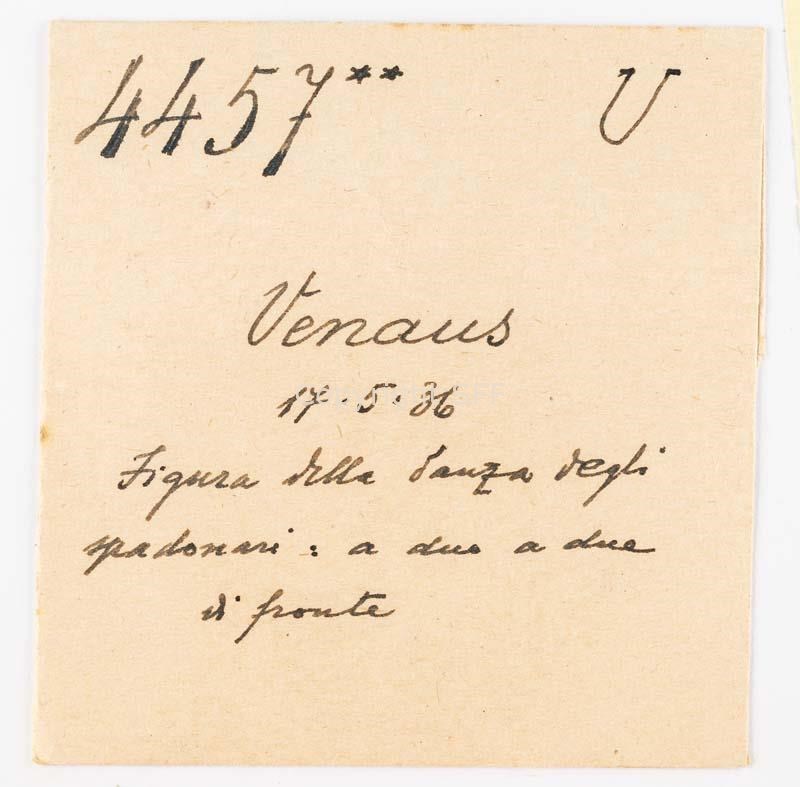 4457** V
Venaus
17.5.36
Figura della danza degli
spadonari: a due a due
di fronte